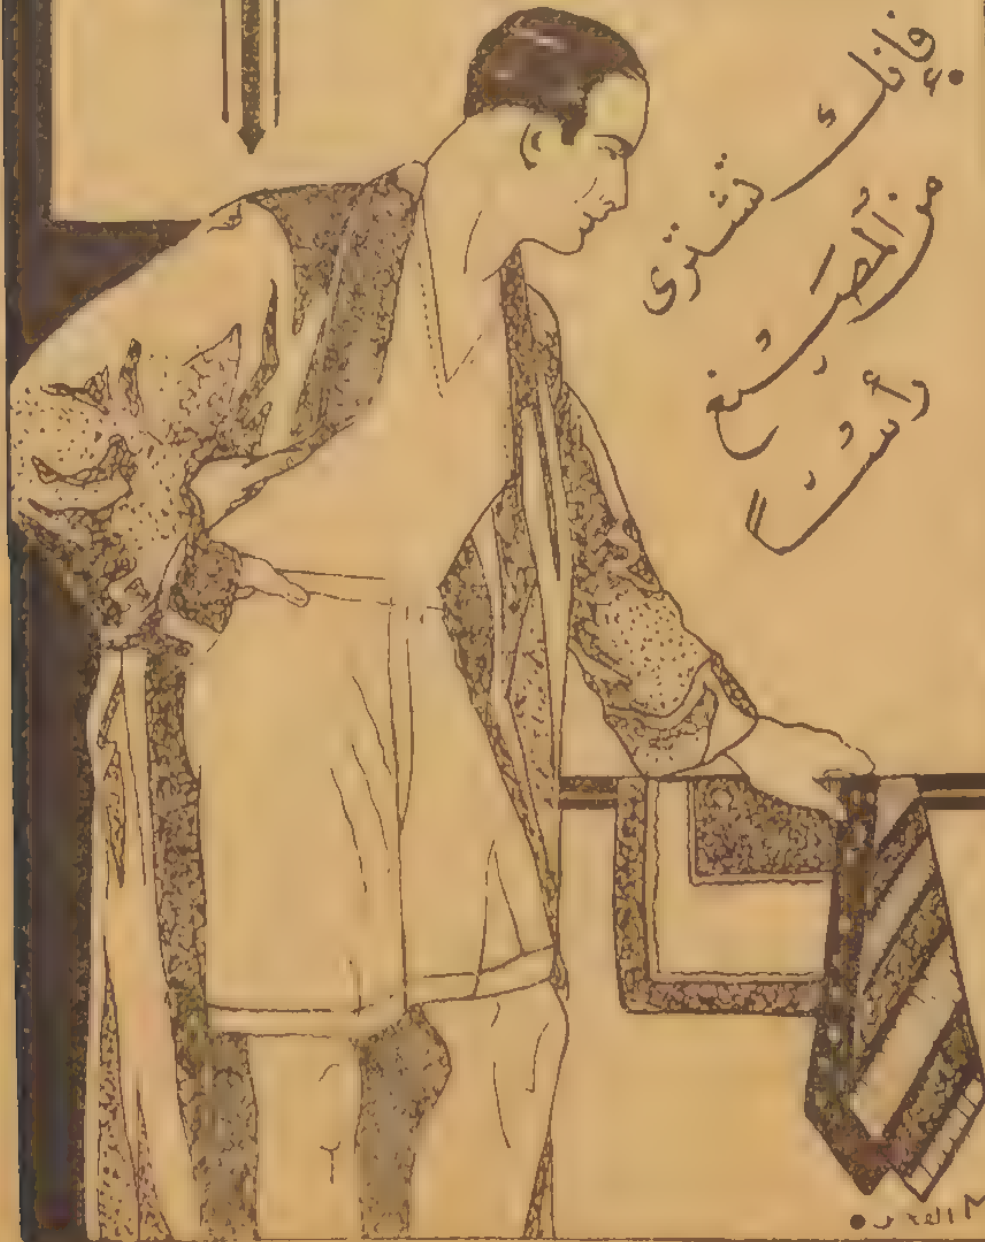 فإنك تشترى
من المصنع
رأسًا